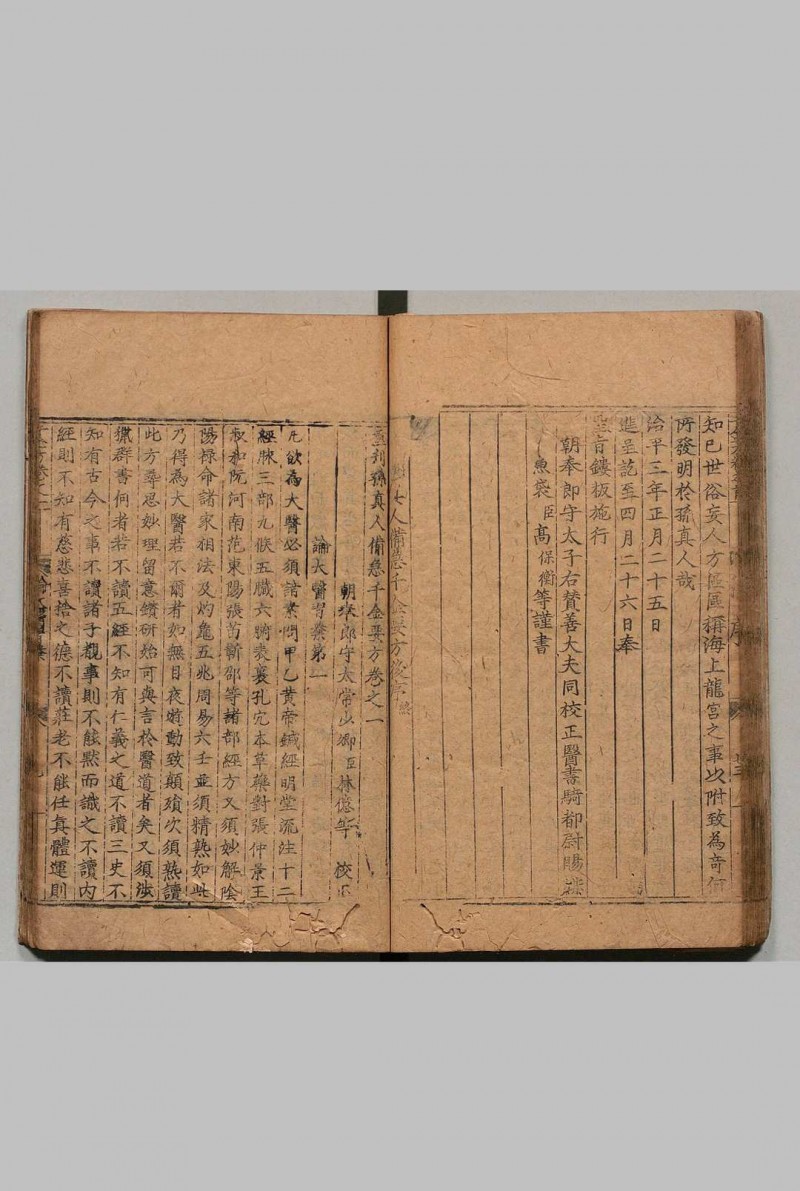 知已世俗妄人方區區稱海上龍宮之事以附致為奇何
所發明於孫真人哉
治平三年正月二十五日
進呈訖至四月二十六日奉
聖旨鏤板施行
朝奉郎守太子右賛善大夫同校正醫書騎都尉賜緋
魚袋臣高保衡等謹書
孫真人備急千金要方後序終
重刋孫真人備急千金要方卷之一
朝奉郎守太常少卿臣林億等 校正
論大醫習業第一
凡欲為大醫必須諳素問甲乙黄帝鍼經明堂流注十二
經脉三部九候五臓六腑表裏孔穴本草藥對張仲景王
叔和阮河南范東陽張苗靳邵等諸部經方又須妙解陰
陽祿命諸家相法及灼龜五兆周易六壬並須精熟如此
乃得為大醫若不爾者如無目夜遊動致顛殞次須熟讀
此方尋思妙理留意鑽研始可與言於醫道者矣又須涉
獵群書何者若不讀五經不知有仁義之道不讀三史不
知有古今之事不讀諸子覩事則不能黙而識之不讀内
經則不知有慈悲喜捨之徳不讀莊老不能任真體運則